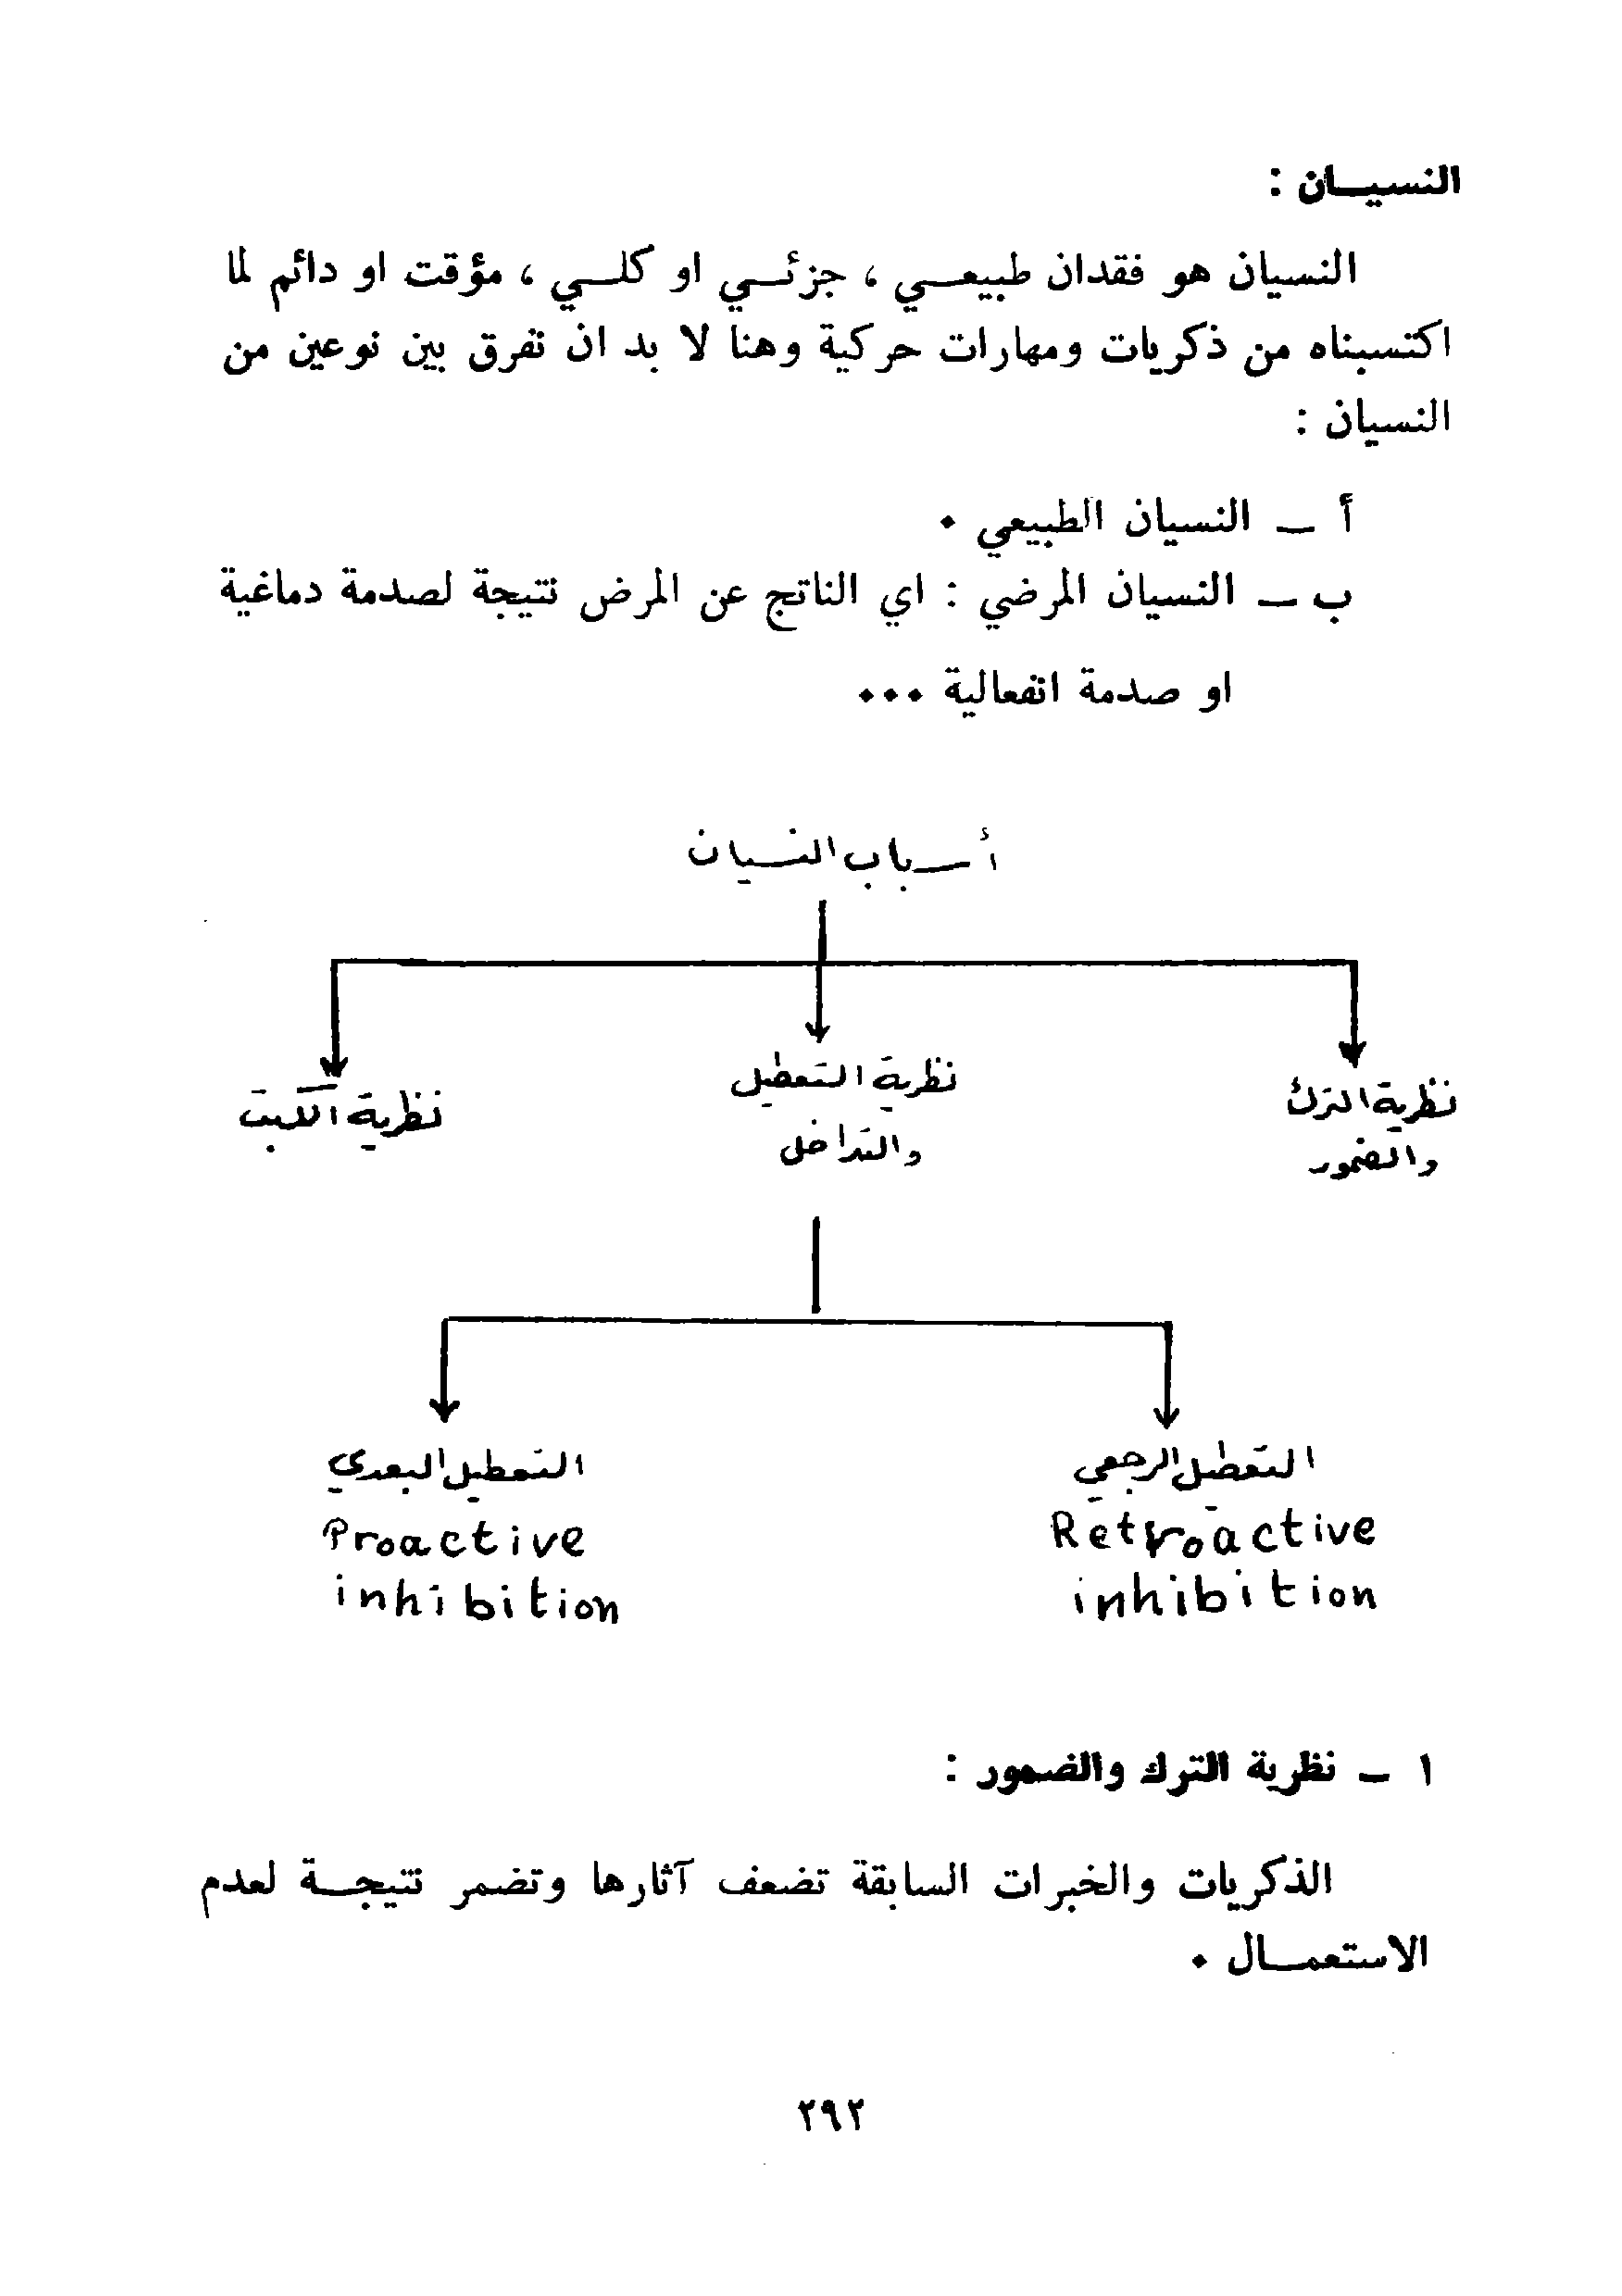 النسيان :
النسيان هو فقدان طبيعي ، جزئي او كلي ، مؤقت او دائم لما
اكتسبناه من ذكريات ومهارات حركية وهنا لا بد ان نفرق بين نوعين من
النسيان :
أ – النسيان الطبيعي .
ب – النسيان المرضي : اي الناتج عن المرض نتيجة لصدمة دماغية
او صدمة انفعالية ...
أسباب النسيان
نظرية الترك
والضمور
نظرية التعطيل
والتداخل
نظرية الكبت
التعطيل الرجعي
Retroactive
inhibition
التعطيل البعدي
Proactive
inhibition
١ – نظرية الترك والضمور :
الذكريات والخبرات السابقة تضعف آثارها وتضمر نتيجة لعدم
الاستعمال .
٢٩٢